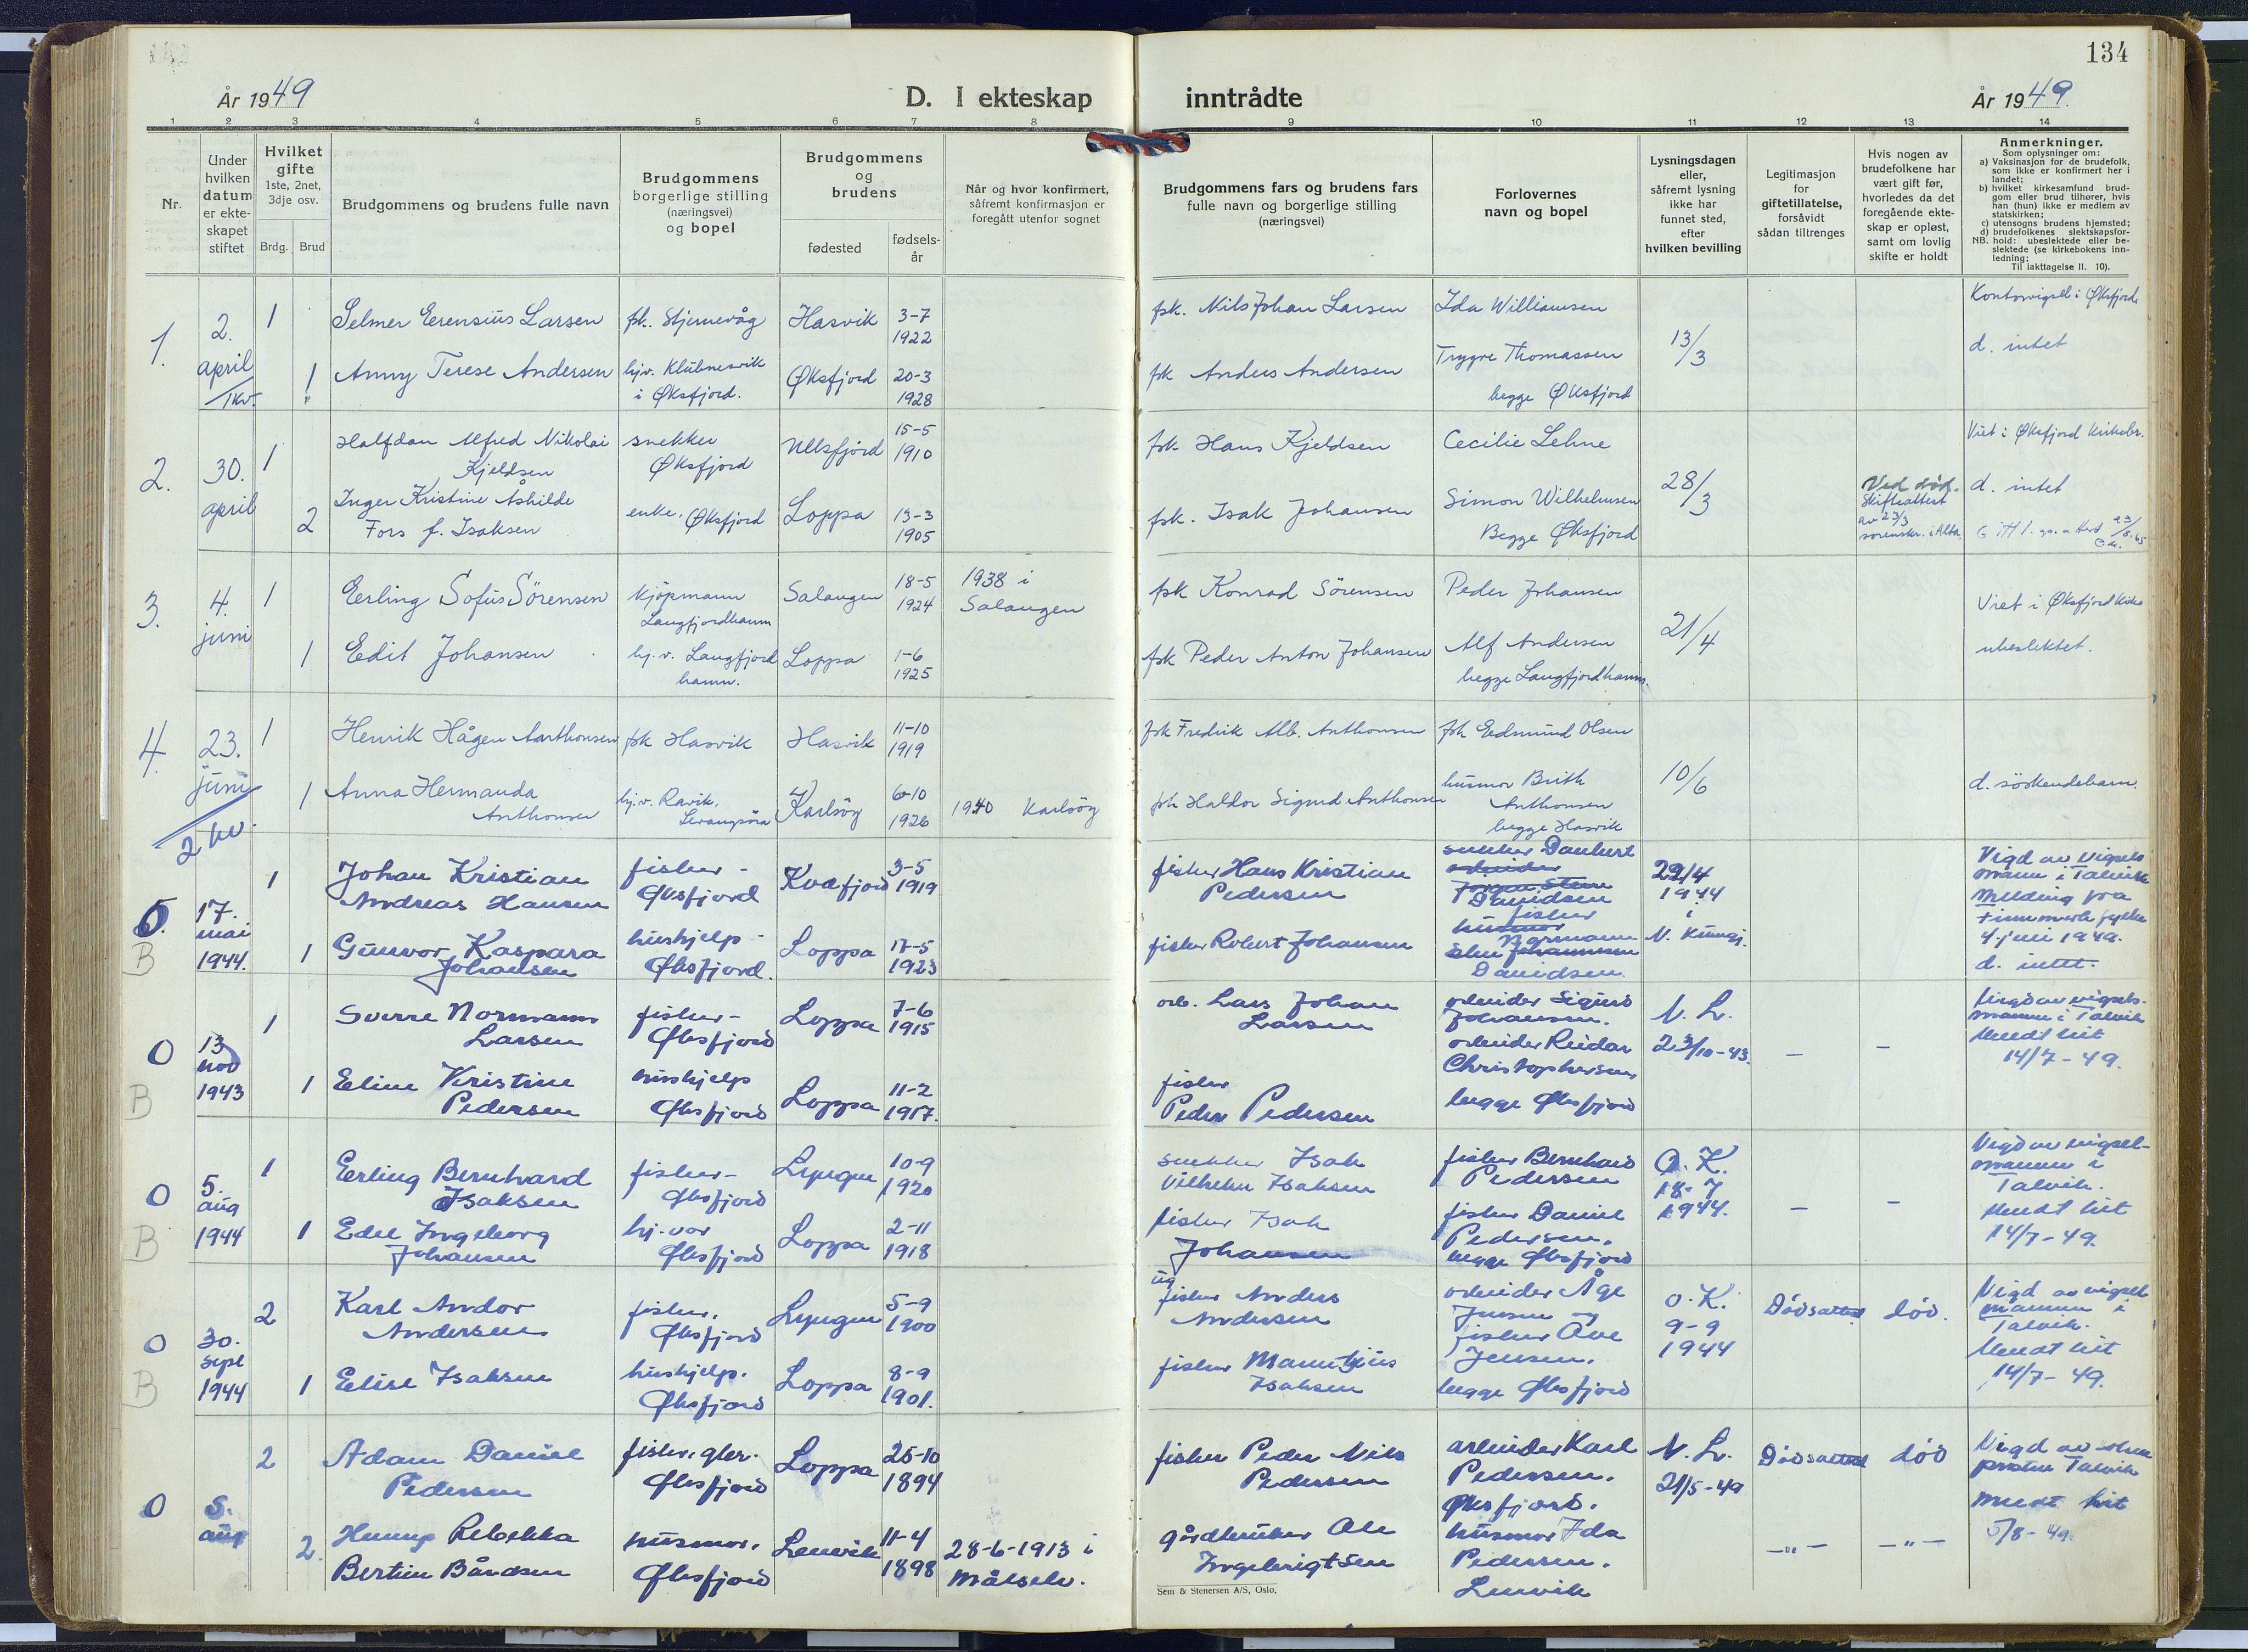 134
År 1949
D. I ekteskap inntrådte
År 1949.
1 2 3 4 5 6 7 8 9 10 11 12 13 14
Nr.
Under
hvilken
datum
er ekte-
skapet
stiftet
Hvilket
gifte
1ste, 2net,
3dje osv.
Brdg. Brud
Brudgommens og brudens fulle navn
Brudgommens
borgerlige stilling
(næringsvei)
og bopel
Brudgommens
og
brudens
fødested
fødsels-
år
Når og hvor konfirmert,
såfremt konfirmasjon er
foregått utenfor sognet
Brudgommens fars og brudens fars
fulle navn og borgerlige stilling
(næringsvei)
Forlovernes
navn og bopel
Lysningsdagen
eller,
såfremt lysning
ikke har
funnet sted,
efter
hvilken bevilling
Legitimasjon
for
giftetillatelse,
forsåvidt
sådan tiltrenges
Hvis nogen av
brudefolkene har
vært gift før,
hvorledes da det
foregående ekte-
skap er opløst,
samt om lovlig
skifte er holdt
Anmerkninger.
Som oplysninger om:
a) Vaksinasjon for de brudefolk,
som ikke er konfirmert her i
landet;
b) hvilket kirkesamfund brud-
gom eller brud tilhører, hvis
han (hun) ikke er medlem av
statskirken;
c) utensogns brudens hjemsted;
d) brudefolkenes slektskapsfor-
NB. hold: ubeslektede eller be-
slektede (se kirkebokens inn-
ledning;
Til iakttagelse II. 10).
1.
2.
april
1kv.
1
Selmer Erensius Larsen
fsk. Stjernevåg
Hasvik
3-7
1922
fsk. Nils Johan Larsen
Ida Williamsen
13/3
Kontorvigsel i Øksfjord
1
Anny Terese Andersen
hj.v. Klubnesvik
i Øksfjord.
Øksfjord
20-3
1928
fsk Anders Andersen
Trygve Thomassen
begge Øksfjord
d. intet
2.
30.
april
1
Halfdan Alfred Nikolai
Kjeldsen
snekker
Øksfjord
Ullsfjord
15-5
1910
fsk Hans Kjeldsen
Cecilie Lehne
28/3
Viet i Øksfjord kirkebr.
2
Inger Kristine Åshilde
Fors f. Isaksen
enke, Øksfjord
Loppa
13-3
1905
fsk. Isak Johansen
Simon Wilhelmsen
Begge Øksfjord
Ved død.
Skifteattest
av 23/3
sorenskr. i Alta
d. intet
3.
4.
juni
1
Erling Sofus Sörensen
kjöpmann
Langfjordhamn
Salangen
18-5
1924
1938 i
Salangen
fsk Konrad Sörensen
Peder Johansen
21/4
Viet i Øksfjord kirke
1
Edit Johansen
hj.v. Langfjord
hamn.
Loppa
1-6
1925
fsk Peder Anton Johansen
Alf Andersen
begge Langfjordhamn.
ubeslektet.
4.
23.
juni
2 kv.
1
Henrik Hågen Anthonsen
fsk Hasvik
Hasvik
11-10
1919
fsk Fredrik Alb. Anthonsen
fsk Edmund Olsen
10/6
1
Anna Hermanda
Anthonsen
hj.v. Ravik,
Karlsöy
6-10
1926
1940 Karlsöy
fsk Haldor Sigurd Anthonsen
husmor Brith
Anthonsen
begge Hasvik
d. söskendebarn.
5.
B
17.
mai
1944.
1
Johan Kristian
Andreas Hansen
fisker -
Øksfjord
Kvæfjord
3-5
1919
fisker Hans Kristian
Pedersen
snekker Daubert
Davidsen
fisker
29/4
1944
i
N. Kungj.
Vigd av vigsels
mann i Talvik
Melding fra
Finnmark fylke
4. juli 1949.
d. intet.
1
Gunvor Kaspara
Johansen
hushjelp -
Øksfjord.
Loppa
17-5
1923
fisker Robert Johansen
Normann
Davidsen.
O
B
13
nov
1943
1
Sverre Normann
Larsen
fisker -
Øksfjord
Loppa
7-6
1915
arb. Lars Johan
Larsen
arbeider Sigurd
Johansen.
arbeider Reidar
Christophersen
begge Øksfjord
N. L.
23/10-43.
-
-
Vigd av vigsels-
mannen i Talvik
Meldt hit
14/7-49.
1
Eline Kristine
Pedersen
hushjelp
Øksfjord
Loppa
11-2
1917.
fisker
Peder Pedersen
O
B
5.
aug
1944
1
Erling Bernhard
Isaksen
fisker -
Øksfjord
Lyngen
10-9
1920
snekker Isak
Vilhelm Isaksen
fisker Bernhard
Pedersen
O. K.
18-7
1944.
-
-
Vigd av vigsel-
mannen i
Talvik.
Meldt hit
14/7-49.
1
Edel Ingeborg
Johansen
hj. vær
Øksfjord
Loppa
2-11
1918
fisker Isak
Johansen
fisker Daniel
Pedersen.
begge Øksfjord
O
B
30.
sept
1944
2
Karl Andor
Andersen
fisker,
Øksfjord
Lyngen
5-9
1900
fisker Anders
Andersen
arbeider Åge
Jensen og
fisker Ove
Jensen.
begge Øksfjord
O. K.
9-9
1944
Dødsattest
død.
Vigd av vigsel
mannen i
Talvik.
Meldt hit
14/7-49.
1
Elise Isaksen
hushjelp.
Øksfjord
Loppa
8-9
1901.
fisker Mauritzius
Isaksen
O
5.
aug
2
Adam Daniel
Pedersen
fisker, gbr.
Øksfjord
Loppa
25-10
1894
fisker Peder Nils
Pedersen
arbeider Karl
Pedersen.
Øksfjord.
N. L.
21/5-49
Dødsattest
død
Vigd av
Talvik
Meldt hit
5/8-49.
2.
Rebekka
Bertine Bårdsen
husmor,
Øksfjord
Lenvik
11-4
1898
28-6-1913 i
Målselv.
gårdbruker Ole
Ingebrigtsen
husmor Ida
Pedersen.
Lenvik
-"-
-"-
Sem & Stenersen A/S, Oslo.